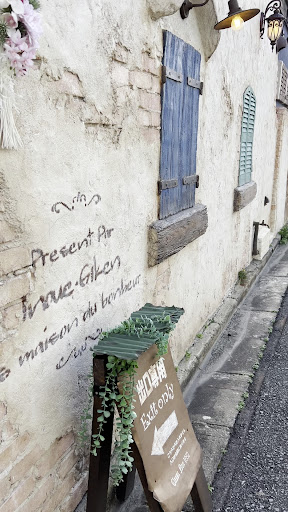 Present Par
Inoue-Giken
a maison du bonheur
出口専用
Exit only